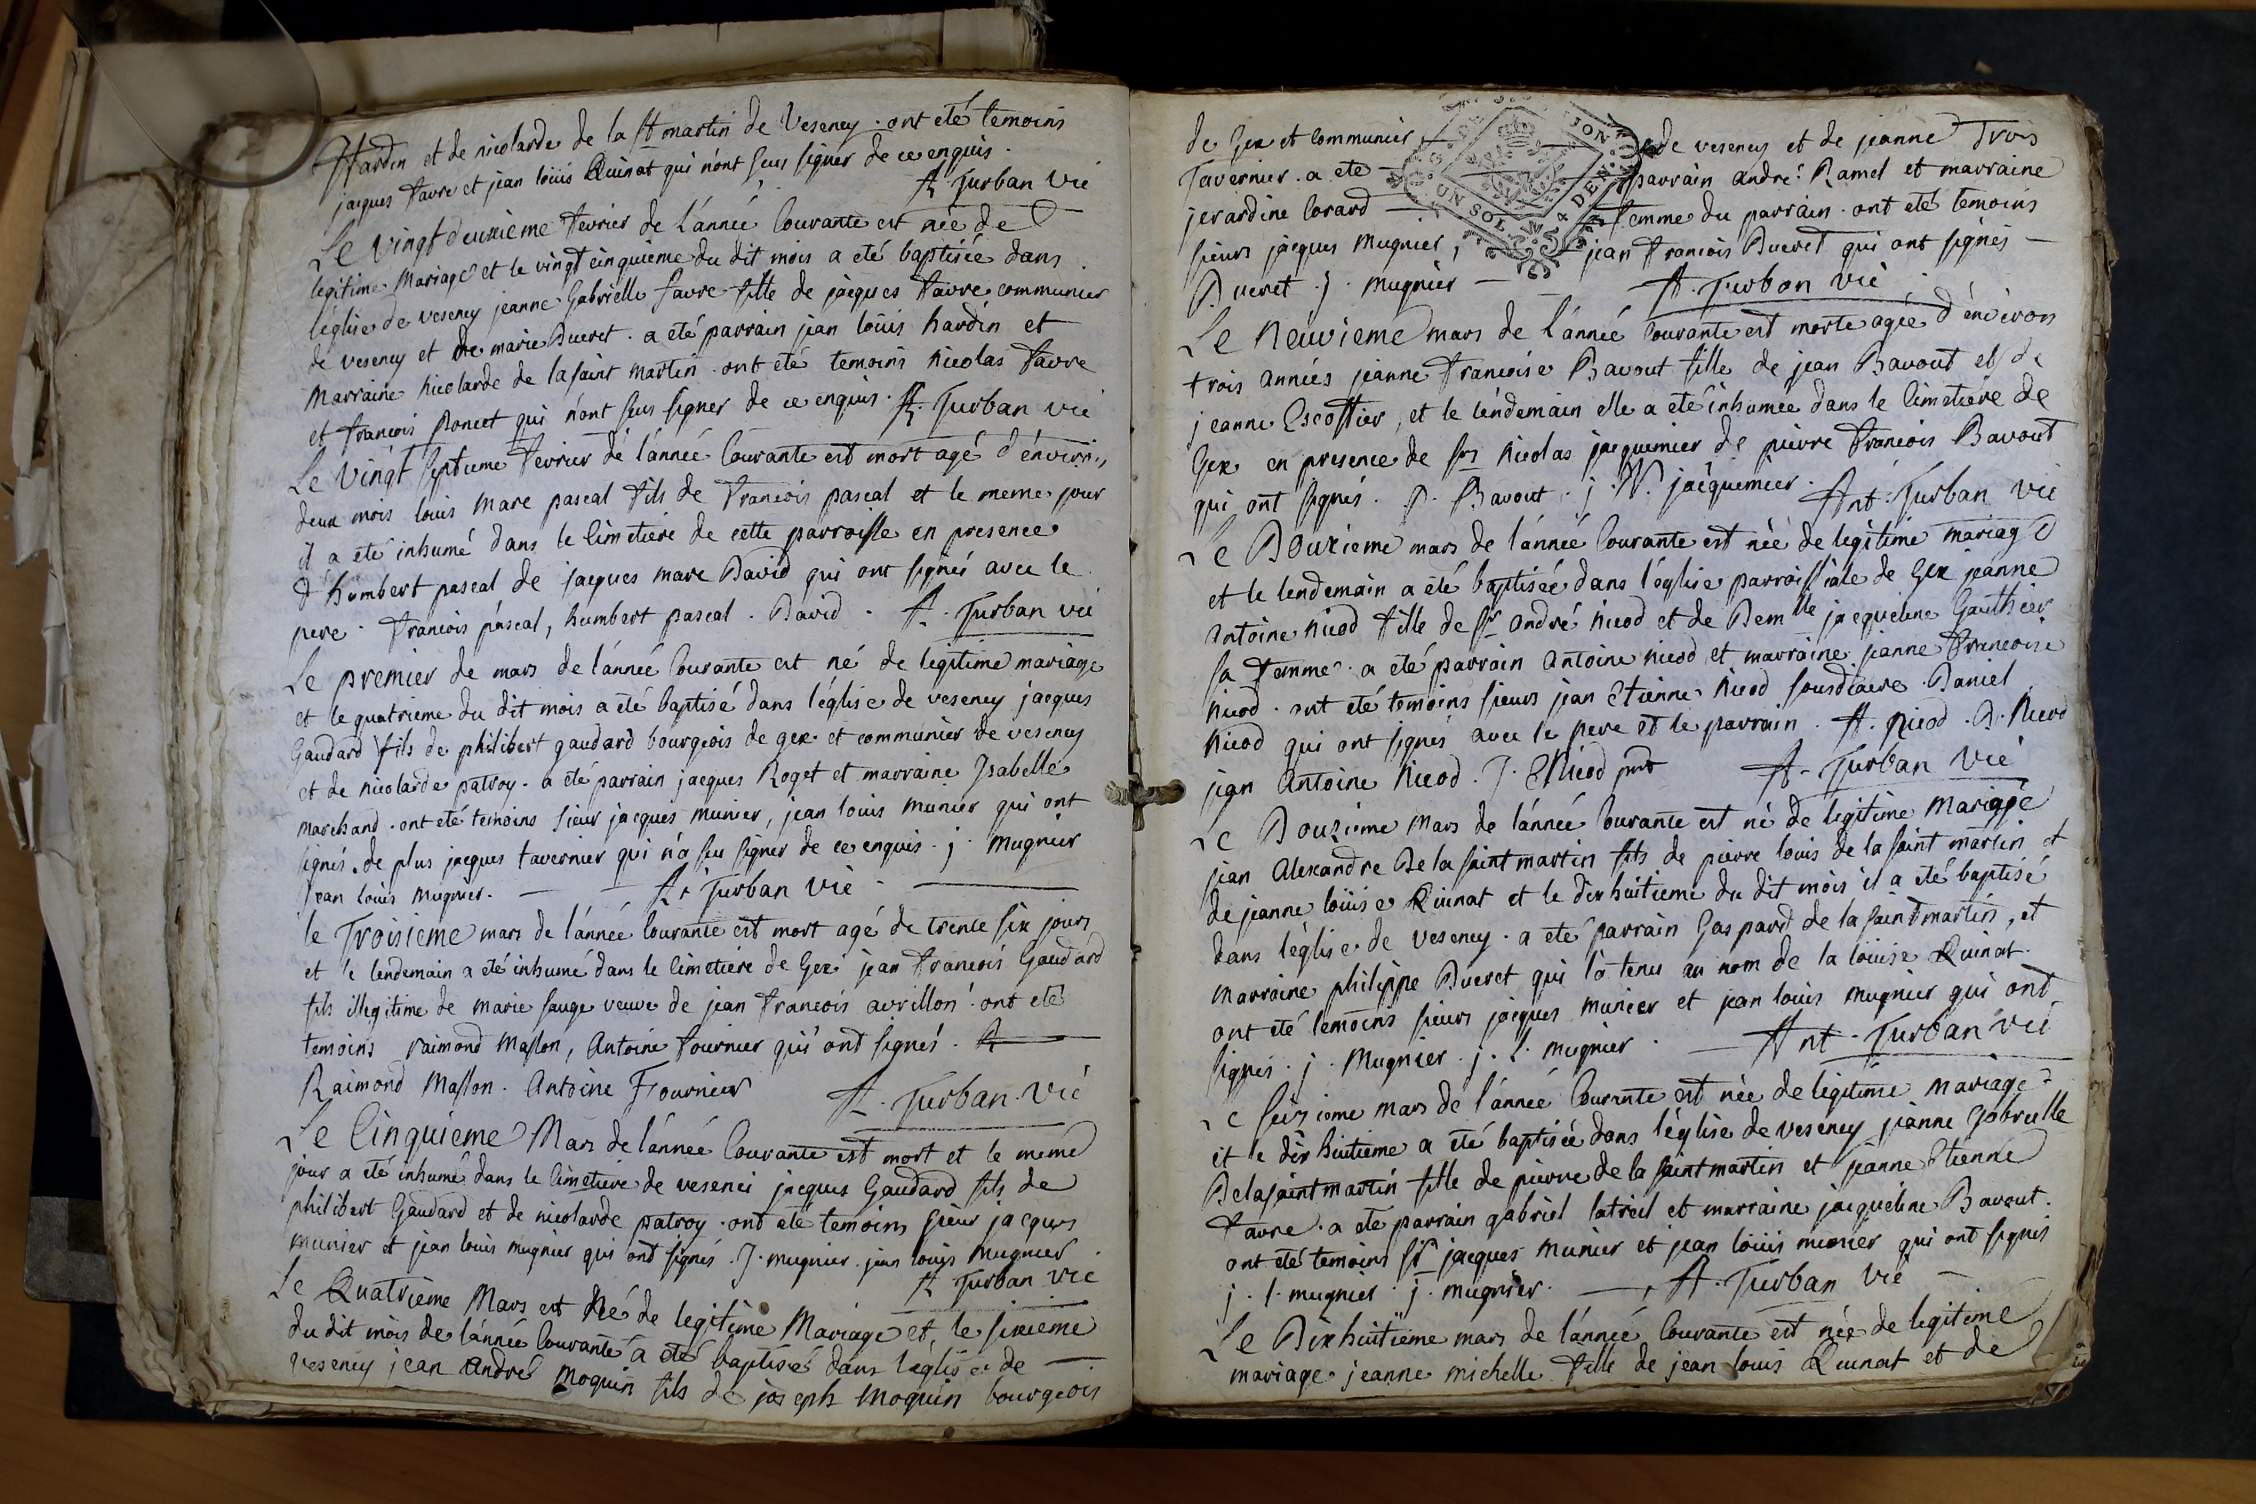 hardin et de nicolarde de la st martin de Veseney . ont eté temoins
jacques favre et jean loüis Quinat qui n'ont seus signer de ce enquis .
A Turban vić
Le vingt deuxieme fevrier de l'année Courante est née de
legitime Mariage et le vingt cinquieme du dit mois a eté baptisée dans
l'eglise de veseney jeanne Gabrielle favre fille de jacques favre communier
de veseney et de marie Dueret . a eté parrain jean loüis hardin et
Marraine nicolarde de la saint martin . ont eté temoins nicolas favre
et francois Poncet qui n'ont seus signer de ce enquis . A. Turban vić
Le Vingt septieme fevrier de l'année Courante est mort agé d'environ
deux mois louis Marc pascal fils de francois pascal et le meme jour
il a eté inhumé dans le Cimetiere de cette parroisse en presence
d'humbert pascal de jacques marc David qui ont signés avec le
pere . francois pascal, humbert pascal . David . A . Turban vić
Le premier de mars de l'année Courante est né de legitime mariage
et le quatrieme du dit mois a eté baptisé dans l'eglise de veseney jacques
Gaudard fils de philibert gaudard bourgeois de gex et communier de veseney
et de nicolarde patroy . a eté parrain jacques Roget et marraine Isabelle
marchand . ont eté temoins sieur jacques munier, jean louis munier qui ont
signés . de plus jacques tavernier qui n'a seu signer de ce enquis . j . mugnier
Jean louis mugnier . A . Turban vić
le Troisieme mars de l'année Courante est mort agé de trente six jours
et le lendemain a eté inhumé dans le Cimetiere de Gex jean francois Gaudard
fils illegitime de marie sauge veuve de jean francois avrillon . ont eté
temoins raimond Masson, Antoine fournier qui ont signés . A
Raimond Masson . Antoine Fournier A . Turban . vić
Le Cinquieme Mars de l'année Courante est mort et le meme
jour a eté inhumé dans le Cimetiere de vesenei jacques Gaudard fils de
philibert Gaudard et de nicolarde patroy . ont eté temoins sieur jacques
munier et jean louis mugnier qui ont signés . J . mugnier . jean louis mugnier .
A Turban vić
Le Quatrieme Mars est Né de legitime Mariage et le sixieme
du dit mois de l'année Courante a eté baptisé dans l'eglise de
veseney jean André Moquin fils de joseph Moquin bourgeois
de Gex et Communier de veseney et de jeanne Trois
Tavernier . a eté parrain andré Ramel et marraine
jerardine Corard femme du parrain . ont eté temoins
sieurs jacques mugnier, jean francois Dueret qui ont signés
Dueret . J . mugnier A . Turban vić
G. DE DIJON
UN SOL 4 DEN.
Le Neuvieme mars de l'année Courante est morte agée d'environ
trois années jeanne francoise Bavout fille de jean Bavout et de
jeanne Escoffier, et le lendemain elle a eté inhumée dans le Cimetiére de
Gex en presence de srs nicolas jacquemier de pierre francois Bavout
qui ont signés . P . Bavout . j . N . jacquemier . Ant . Turban vić
Le Douzieme mars de l'année Courante est née de legitime mariage
et le lendemain a eté baptisée dans l'eglise parroissiale de Gex jeanne
antoine nicod fille de sr andré nicod et de Demlle jacqueline Gauthier
sa femme . a eté parrain antoine nicod et marraine jeanne francoise
nicod . ont eté temoins sieurs jean Etienne nicod sousdiacre . Daniel
nicod qui ont signés avec le pere et le parrain . A . nicod . D . Nicod
jean antoine nicod . J . E Nicod A . Turban vić
Le Douzieme Mars de l'année Courante est né de legitime Mariage
jean Alexandre De la saint martin fils de pierre louis de la saint martin et
de jeanne loüise Quinat et le dix huitieme du dit mois il a eté baptisé
dans l'eglise de veseney . a eté parrain Gaspard de la saint martin, et
marraine philippe Dueret qui l'a tenu au nom de la loüise Quinat .
ont eté temoins sieurs jacques munier et jean louis mugnier qui ont
signés . j . Mugnier . j . l . mugnier . Ant . Turban vić
Le seizieme mars de l'année Courante est née de legitime mariage
et le dix huitieme a eté baptisée dans l'eglise de veseney jeanne gabrielle
De la saint martin fille de pierre de la saint martin et jeanne Etienne
favre . a eté parrain gabriel latreil et marraine jacqueline Bavout .
ont eté temoins sr jacques munier et jean loüis munier qui ont signés
j . l . mugnier . j . mugnier . A . Turban vić
Le Dix huitieme mars de l'année Courante est née de legitime
mariage jeanne michelle fille de jean louis Quinat et de